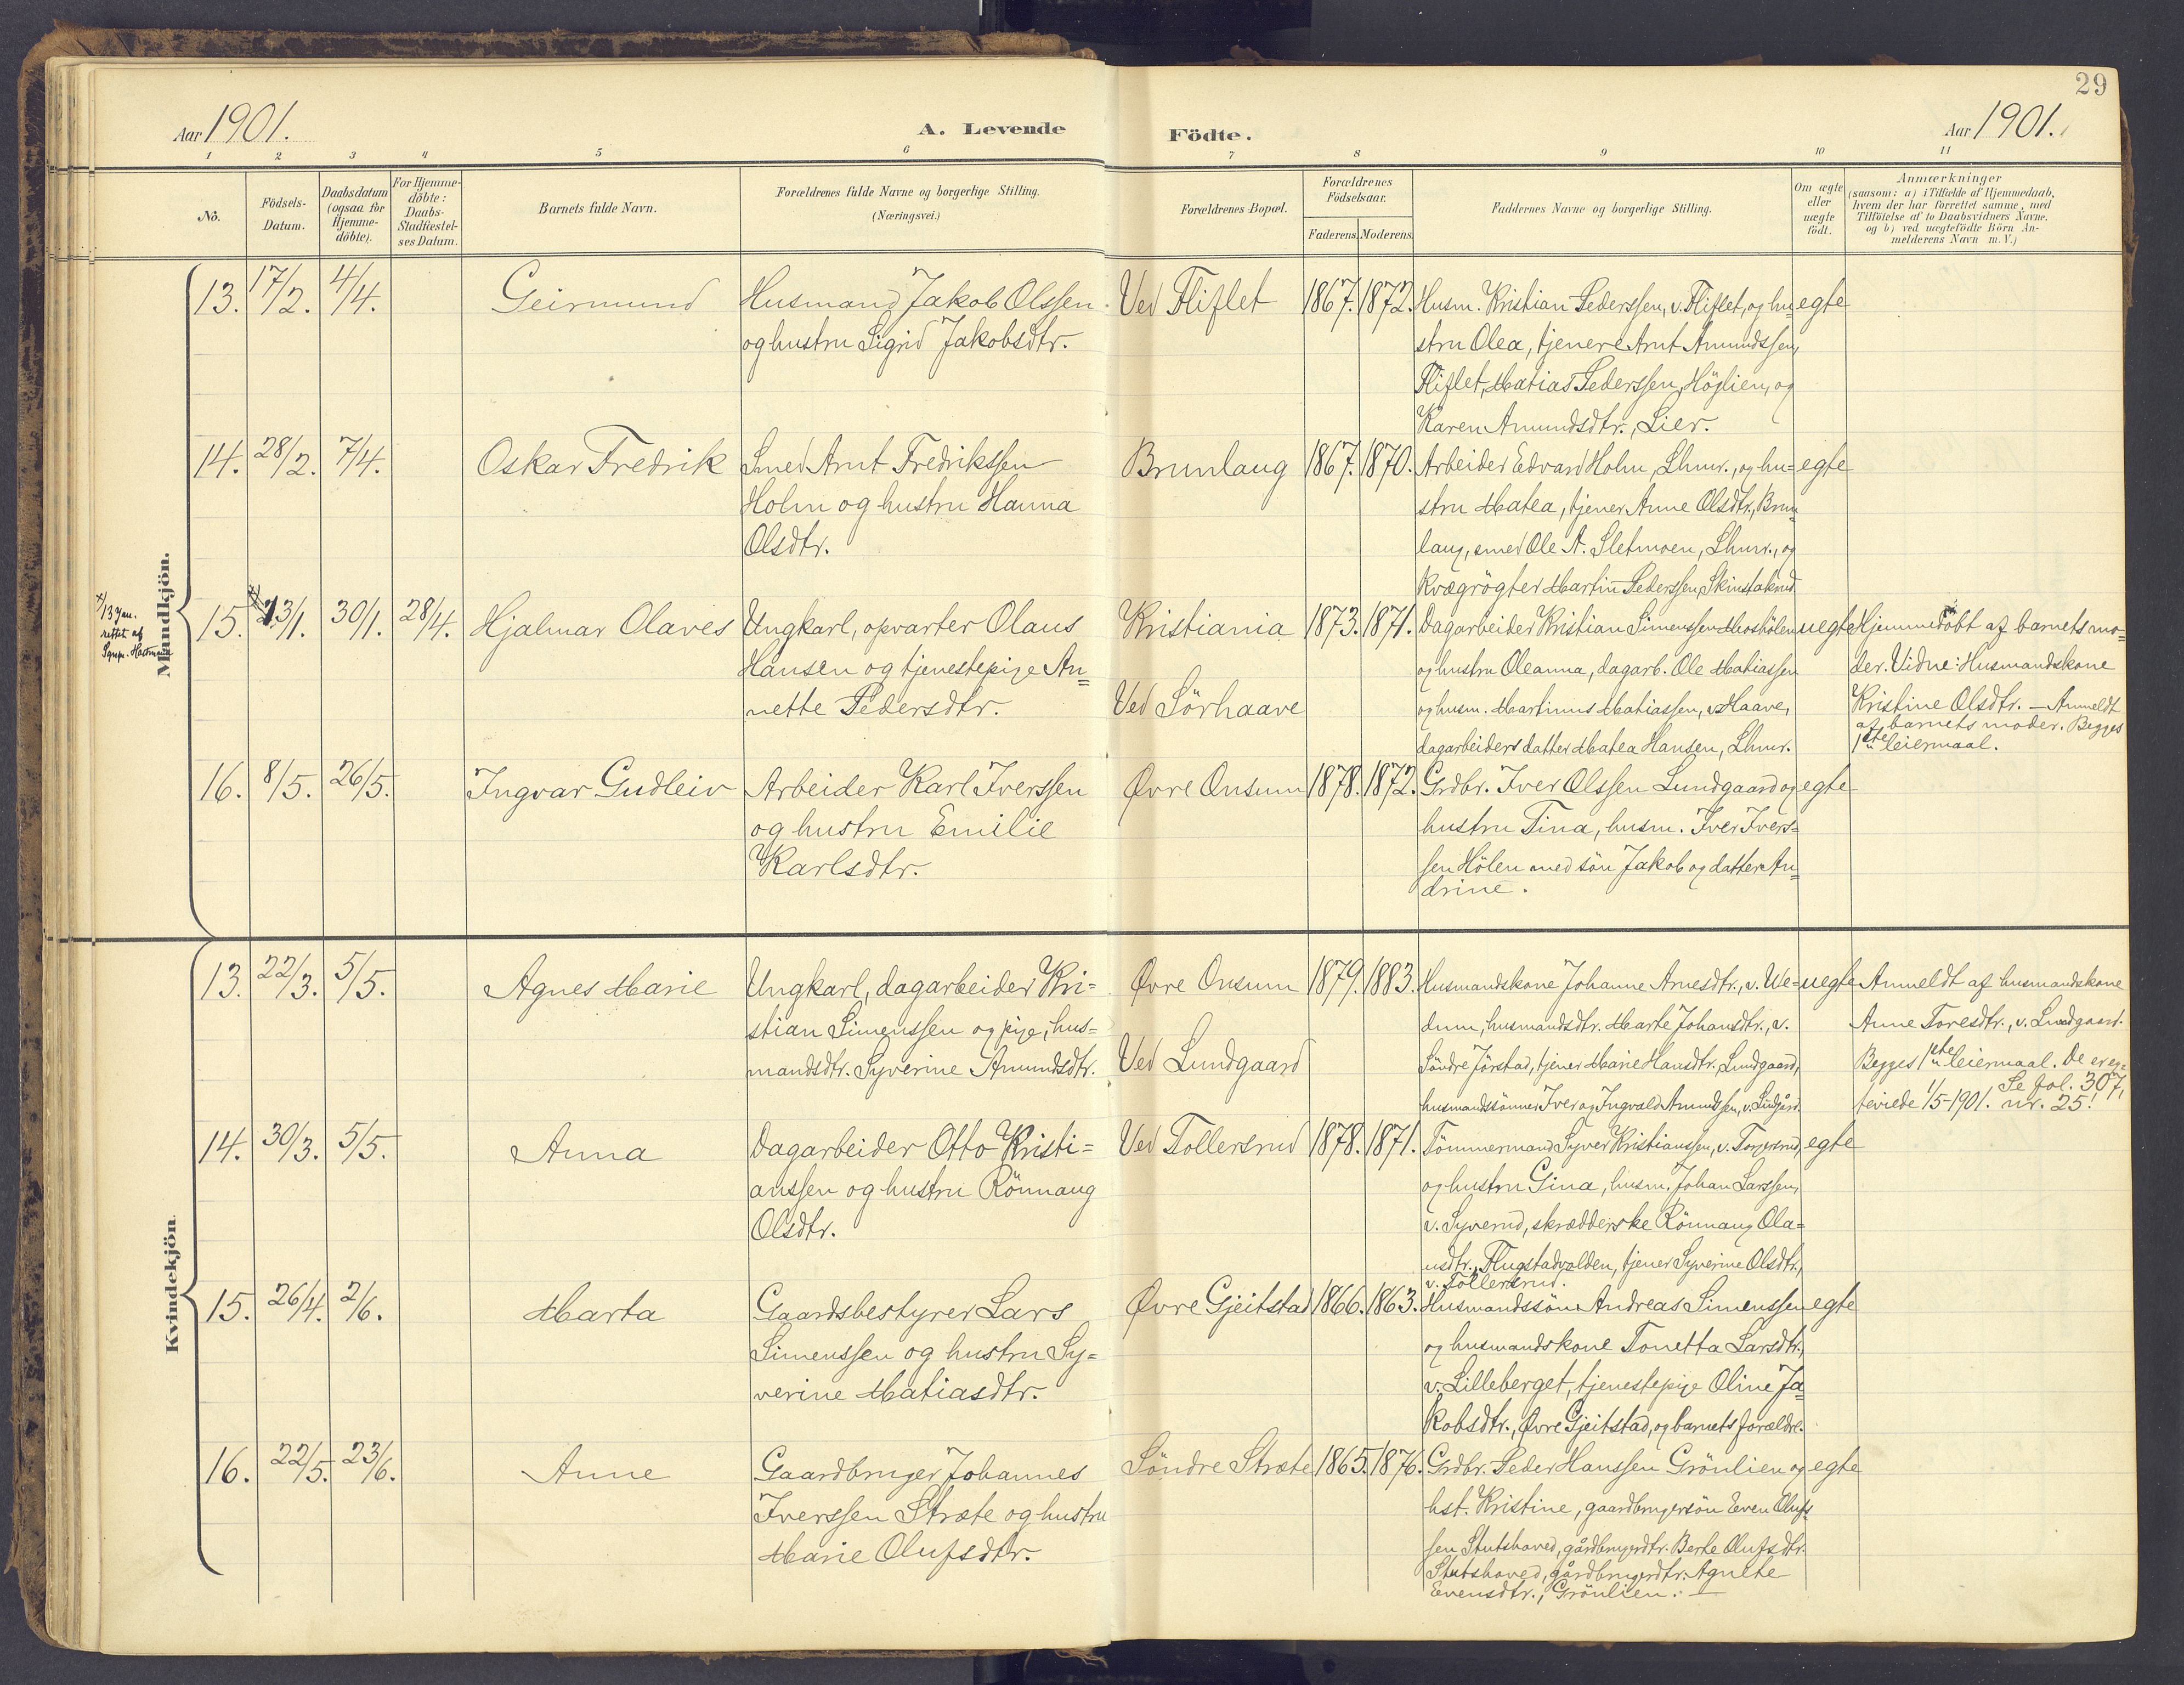 29
Aar 1901.
A. Levende
Födte.
Aar 1901.
1 2 3 4 5 6 7 8 9 10 11
No.
Födsels-
Datum.
Daabsdatum
(ogsaa for
Hjemme-
döbte).
For Hjemme-
döbte:
Daabs-
Stadfæstel-
ses Datum.
Barnets fulde Navn.
Forældrenes fulde Navne og borgerlige Stilling.
(Næringsvei.)
Forældrenes Bopæl.
Forældrenes
Födselsaar.
Faderens. Moderens.
Faddernes Navne og borgerlige Stilling.
Om ægte
eller
uægte
födt.
Anmærkninger
(saasom: a) i Tilfælde af Hjemmedaab,
hvem der har forrettet samme, med
Tilföielse af to Daabsvidners Navne.
og b) ved uægtefödte Börn An-
melderens Navn m.V.)
Mandkjön.
13. 17/2. 4/4. Geirmund Husmand Jakob Olssen Ved Fliflet 1867. 1872. Husm. Kristian Pederssen, v. Fliflet, og hu= egte
og hustru Sigrid Jakobsdtr. stru Olea, tjenere Arnt Amundssen,
Fliflet, Matias Pederssen, Höglien, og
Karen Amundsdtr., Lier.
14. 28/2. 7/4. Oskar Fredrik Smed Arnt Fredrikssen Brunlaug 1867. 1870. Arbeider Edvard Holm, Lhmr., og hu= egte
Holm og hustru Hanna stru Matea, tjener Anne Olsdtr., Brun
Olsdtr. laug, smed Ole A. Sletmoen, Lhmr., og
Kvægrögter Martin Pederssen, Skinstakrud.
x/ 13 Jan.
rettet af
15. x/ 13/1. 30/1. 28/4. Hjalmar Olaves Ungkarl, opvarter Olaus Kristiania 1873. 1871. Dagarbeider Kristian Simenssen Moshölen uegte Hjemmedöbt af barnets mo=
Hansen og tjenestepige An= og hustru Oleanna, dagarb. Ole Matiassen der. Vidne: Husmandskone
nette Pedersdtr. Ved Sörhaave og husm. Martinus Matiassen, v. Haave, Kristine Olsdtr. — Anmeldt
dagarbeiders datter Matea Hansen, Lhmr. af barnets moder. Begges
1ste leiermaal.
16. 8/5. 26/5. Ingvar Gudleiv Arbeider Karl Iverssen Øvre Onsum 1878. 1872. Grdbr. Iver Olssen Lundgaard og egte
og hustru Emilie hustru Tina, husm. Iver Ivers=
Karlsdtr. sen Hölen med sön Jakob og datter An=
drine.
Kvindekjön.
13. 22/3. 5/5. Agnes Marie Ungkarl, dagarbeider Kri= Øvre Onsum 1879. 1883. Husmandskone Johanne Arnesdtr., v. We= uegte Anmeldt af husmandskone
stian Simenssen og pige, hus= dum, husmandsdtr. Marte Johansdtr., v. Anne Toresdtr., v. Lundgaard.
mandsdtr. Syverine Amundsdtr. Ved Lundgaard Söndre Jörstad, tjener Marie Hansdtr. Lundgaard, Begges 1ste leiermaal. De er eg=
husmandssönner Iver og Ingvald Amundssen, v. Lundgård. teviede 1/5-1901. Se fol. 307,
nr. 25!
14. 30/3. 5/5. Anna Dagarbeider Otto Kristi= Ved Tollersrud 1878. 1871. Tömmermand Syver Kristianssen, v. Torgersrud, egte
anssen og hustru Rönnaug og hustru Gina, husm. Johan Larssen,
Olsdtr. v. Syverud, skrædderske Rönnaug Ola=
usdtr., Flugstadvolden, tjener Syverine Olsdtr.,
v. Tollersrud.
15. 26/4. 2/6. Marta Gaardsbestyrer Lars Øvre Gjeitstad 1866. 1863. Husmandssön Andreas Simenssen egte
Simenssen og hustru Sy= og husmandskone Tonetta Larsdtr.,
verine Matiasdtr. v. Lilleberget, tjenestepige Oline Ja=
kobsdtr., Øvre Gjeitstad, og barnets forældre.
16. 22/5. 23/6. Anne Gaardbruger Johannes Söndre Stræte 1865. 1876. Grdbr. Peder Hanssen Grönlien og egte
Iverssen Stræte og hustru hst. Kristine, gaardbrugersön Even Olufs
Marie Olufsdtr. sen Stutshoved, gårdbrugerdtr. Berte Olufsdtr.
Stutshoved, gårdbrugerdtr. Agnethe
Evensdtr., Grönlien. —